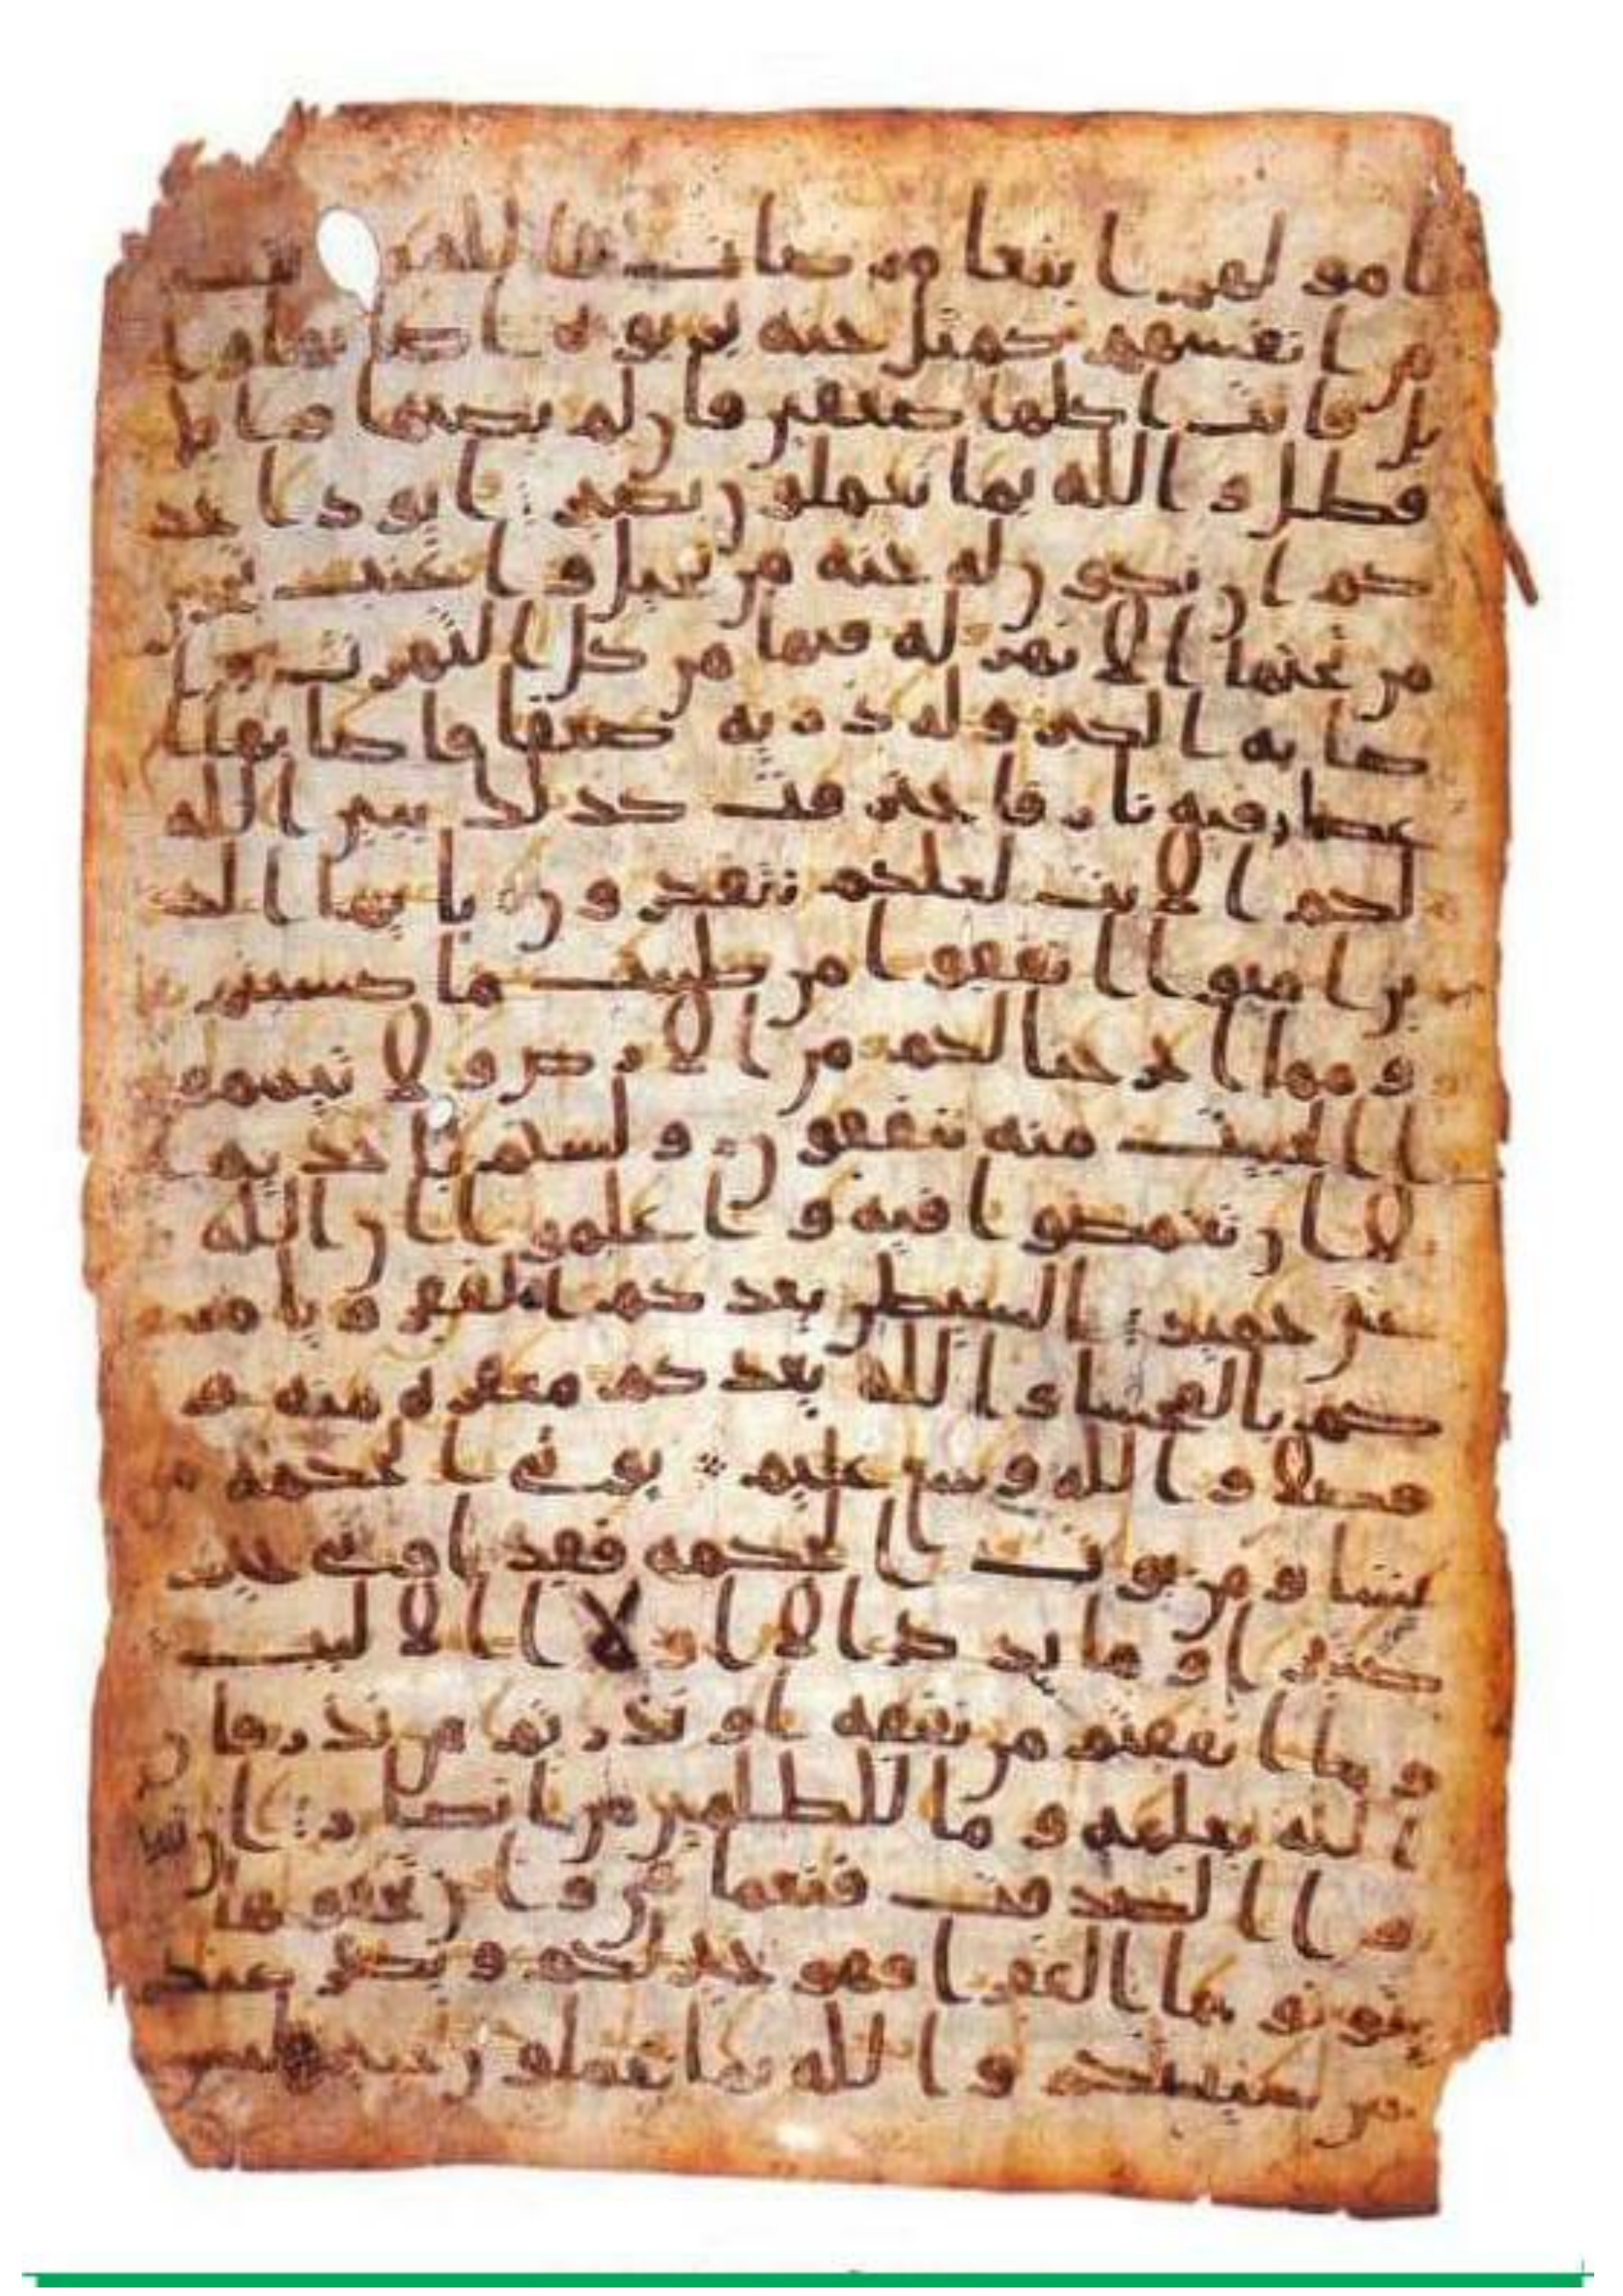 امولهم ابتغا مرضات الله
من انفسهم كمثل جنه بربوه اصابها وا
بل فاتت اكلها ضعفين فان لم يصبها وابل
فطل والله بما تعملون بصير ايود احد
كم ان تكون له جنه من نخيل واعنب تجري
من تحتها الانهر له فيها من كل الثمرت وا
صابه الكبر وله ذريه ضعفا فاصابها ا
عصار فيه نار فاحترقت كذلك يبين الله
لكم الايت لعلكم تتفكرون يايها الذ
ين امنوا انفقوا من طيبت ما كسبتم
ومما اخرجنا لكم من الارض ولا تيممو
ا الخبيث منه تنفقون ولستم باخذيه ا
لا ان تغمضوا فيه واعلموا ان الله
غني حميد الشيطن يعدكم الفقر ويامر
كم بالفحشا والله يعدكم مغفره منه و
فضلا والله وسع عليم يوتي الحكمه من
يشا ومن يوت الحكمه فقد اوتي خير
كثير او ما يذكر الا اولا الالبب
وما انفقتم من نفقه او نذرتم من نذر فان
الله يعلمه وما للظلمين من انصار ان تبد
وا الصدقت فنعما هي وان تخفوها
وتوتوها الفقرا فهو خير لكم ويكفر عنكم
من سيتكم والله بما تعملون خبير ليس